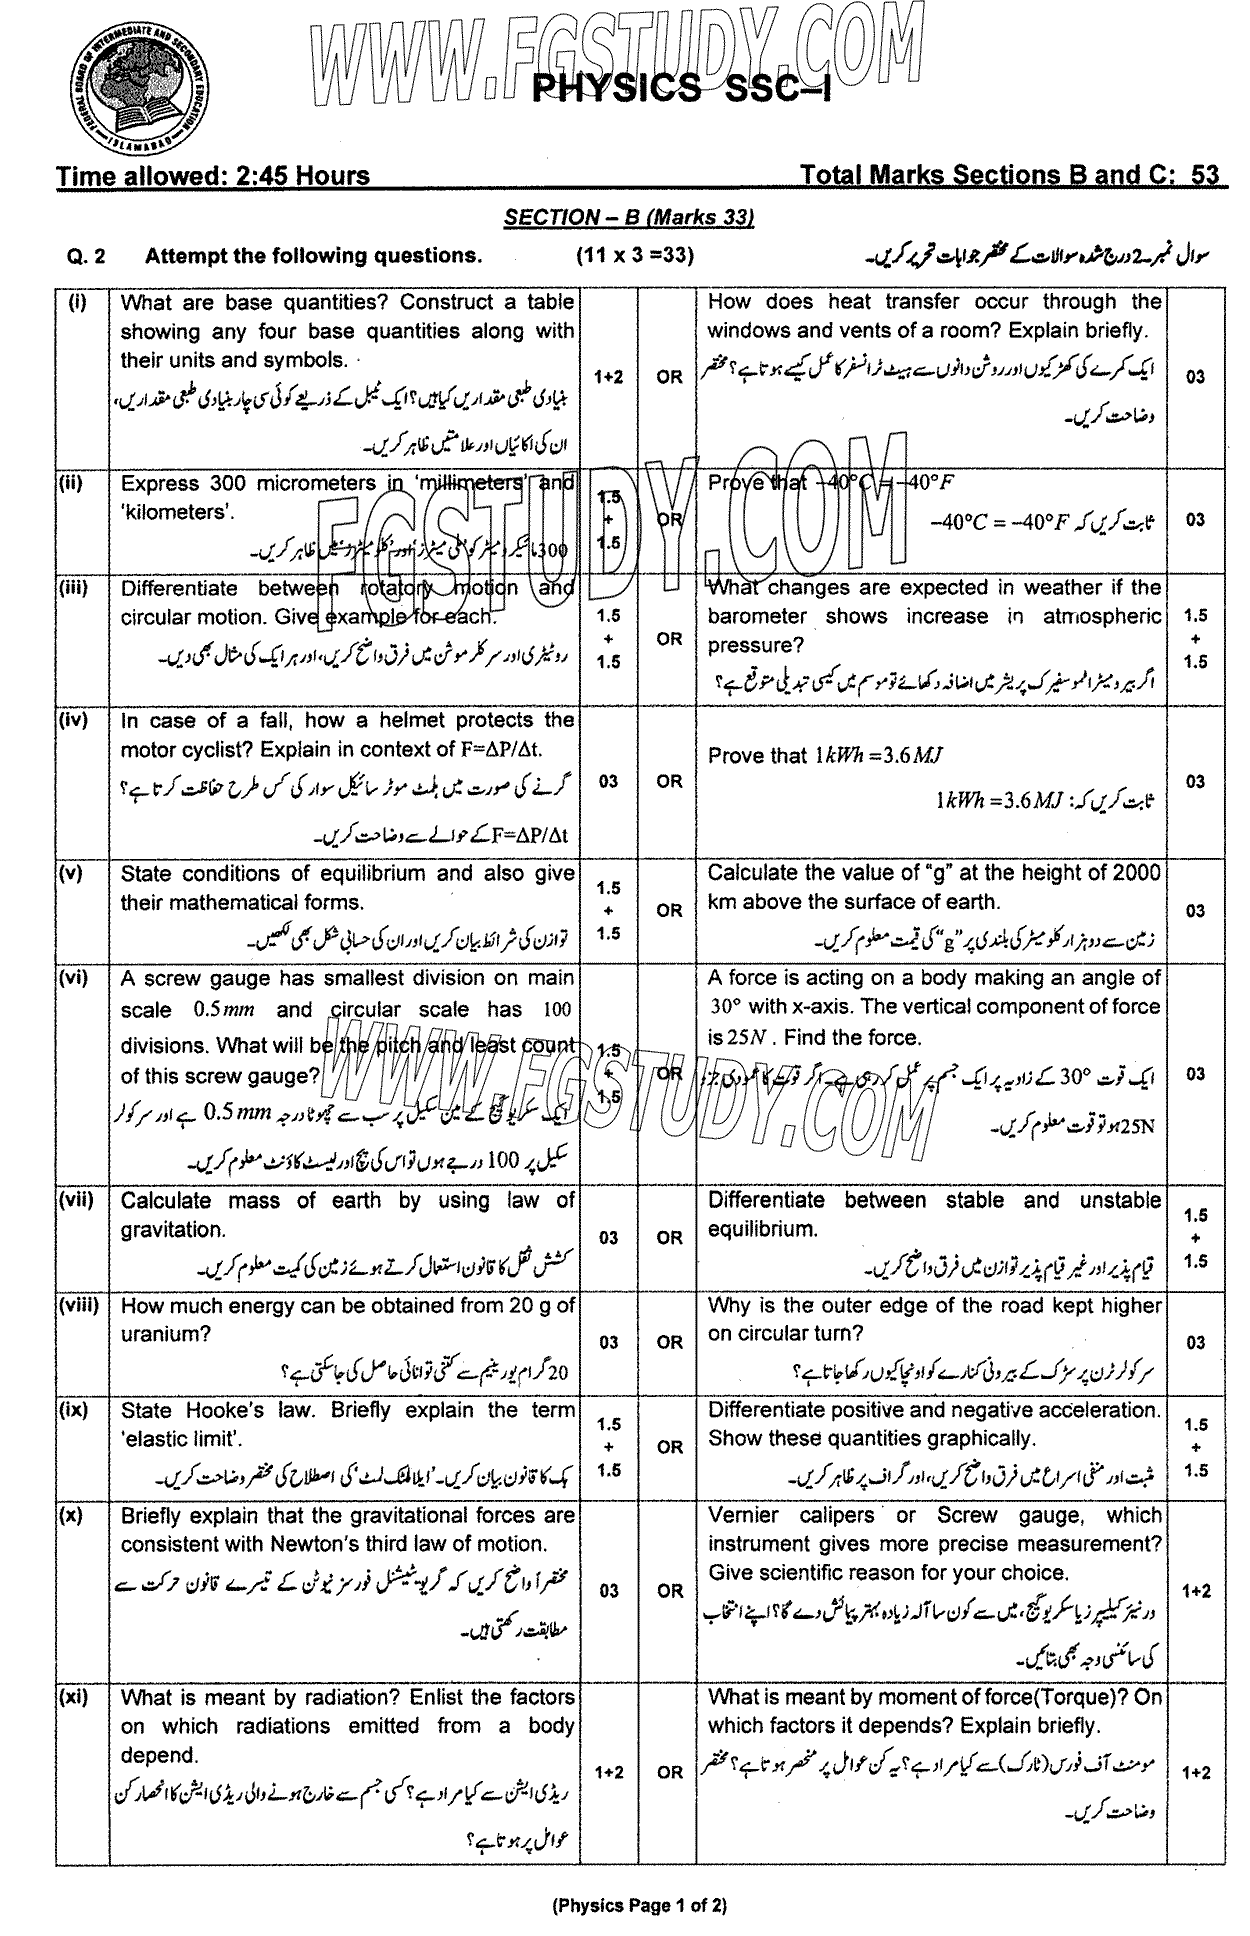 WWW.FGSTUDY.COM
FEDERAL BOARD OF INTERMEDIATE AND SECONDARY EDUCATION
ISLAMABAD
PHYSICS SSC–I
Time allowed: 2:45 Hours
Total Marks Sections B and C: 53
SECTION – B (Marks 33)
Q. 2 Attempt the following questions. (11 x 3 =33) سوال نمبر 2۔ درج شدہ سوالات کے مختصر جوابات تحریر کریں۔
(i)
What are base quantities? Construct a table
showing any four base quantities along with
their units and symbols.
بنیادی طبعی مقداریں کیا ہیں؟ ایک ٹیبل کے ذریعے کوئی سی چار بنیادی طبعی مقداریں،
ان کی اکائیاں اور علامتیں ظاہر کریں۔
1+2
OR
How does heat transfer occur through the
windows and vents of a room? Explain briefly.
ایک کمرے کی کھڑکیوں اور روشن دانوں سے ہیٹ ٹرانسفر کا عمل کیسے ہوتا ہے؟ مختصر
وضاحت کریں۔
03
(ii)
Express 300 micrometers in 'millimeters' and
'kilometers'.
300 مائیکرو میٹر کو ملی میٹرز اور کلو میٹرز میں ظاہر کریں۔
1.5
+
1.5
OR
Prove that –40°C = –40°F
ثابت کریں کہ –40°C = –40°F
03
(iii)
Differentiate between rotatory motion and
circular motion. Give example for each.
روٹیٹری اور سرکلر موشن میں فرق واضح کریں، اور ہر ایک کی مثال بھی دیں۔
1.5
+
1.5
OR
What changes are expected in weather if the
barometer shows increase in atmospheric
pressure?
اگر بیرومیٹر اٹموسفیرک پریشر میں اضافہ دکھائے تو موسم میں کیسی تبدیلی متوقع ہے؟
1.5
+
1.5
(iv)
In case of a fall, how a helmet protects the
motor cyclist? Explain in context of F=ΔP/Δt.
گرنے کی صورت میں ہلمٹ موٹر سائیکل سوار کی کس طرح حفاظت کرتا ہے؟
F=ΔP/Δt کے حوالے سے وضاحت کریں۔
03
OR
Prove that 1kWh =3.6MJ
ثابت کریں کہ: 1kWh =3.6MJ
03
(v)
State conditions of equilibrium and also give
their mathematical forms.
توازن کی شرائط بیان کریں اور ان کی حسابی شکل بھی لکھیں۔
1.5
+
1.5
OR
Calculate the value of "g" at the height of 2000
km above the surface of earth.
زمین سے دو ہزار کلومیٹر کی بلندی پر "g" کی قیمت معلوم کریں۔
03
(vi)
A screw gauge has smallest division on main
scale 0.5mm and circular scale has 100
divisions. What will be the pitch and least count
of this screw gauge?
ایک سکریو گیج کے مین سکیل پر سب سے چھوٹا درجہ 0.5mm ہے اور سرکولر
سکیل پر 100 درجے ہوں تو اس کی پچ اور لیسٹ کاؤنٹ معلوم کریں۔
1.5
+
1.5
OR
A force is acting on a body making an angle of
30° with x-axis. The vertical component of force
is 25N . Find the force.
ایک قوت 30° کے زاویہ پر ایک جسم پر عمل کر رہی ہے۔ اگر قوت کا عمودی جز
25N ہو تو قوت معلوم کریں۔
03
(vii)
Calculate mass of earth by using law of
gravitation.
کشش ثقل کا قانون استعمال کرتے ہوئے زمین کی کمیت معلوم کریں۔
03
OR
Differentiate between stable and unstable
equilibrium.
قیام پذیر اور غیر قیام پذیر توازن میں فرق واضح کریں۔
1.5
+
1.5
(viii)
How much energy can be obtained from 20 g of
uranium?
20 گرام یورینیم سے کتنی توانائی حاصل کی جا سکتی ہے؟
03
OR
Why is the outer edge of the road kept higher
on circular turn?
سرکولر ٹرن پر سڑک کے بیرونی کنارے کو اونچا کیوں رکھا جاتا ہے؟
03
(ix)
State Hooke's law. Briefly explain the term
'elastic limit'.
ہک کا قانون بیان کریں۔ 'ایلاسٹک لمٹ' کی اصطلاح کی مختصر وضاحت کریں۔
1.5
+
1.5
OR
Differentiate positive and negative acceleration.
Show these quantities graphically.
مثبت اور منفی اسراع میں فرق واضح کریں، اور گراف پر ظاہر کریں۔
1.5
+
1.5
(x)
Briefly explain that the gravitational forces are
consistent with Newton's third law of motion.
مختصراً واضح کریں کہ گریویٹیشنل فورسز نیوٹن کے تیسرے قانون حرکت سے
مطابقت رکھتی ہیں۔
03
OR
Vernier calipers or Screw gauge, which
instrument gives more precise measurement?
Give scientific reason for your choice.
ورنیئر کیلیپرز یا سکریو گیج، میں سے کون سا آلہ زیادہ بہتر پیمائش دے گا؟ اپنے انتخاب
کی سائنسی وجہ بھی بتائیں۔
1+2
(xi)
What is meant by radiation? Enlist the factors
on which radiations emitted from a body
depend.
ریڈی ایشن سے کیا مراد ہے؟ کسی جسم سے خارج ہونے والی ریڈی ایشن کا انحصار کن
عوامل پر ہوتا ہے؟
1+2
OR
What is meant by moment of force(Torque)? On
which factors it depends? Explain briefly.
مومنٹ آف فورس (ٹارک) سے کیا مراد ہے؟ یہ کن عوامل پر منحصر ہوتا ہے؟ مختصر
وضاحت کریں۔
1+2
FGSTUDY.COM
WWW.FGSTUDY.COM
(Physics Page 1 of 2)